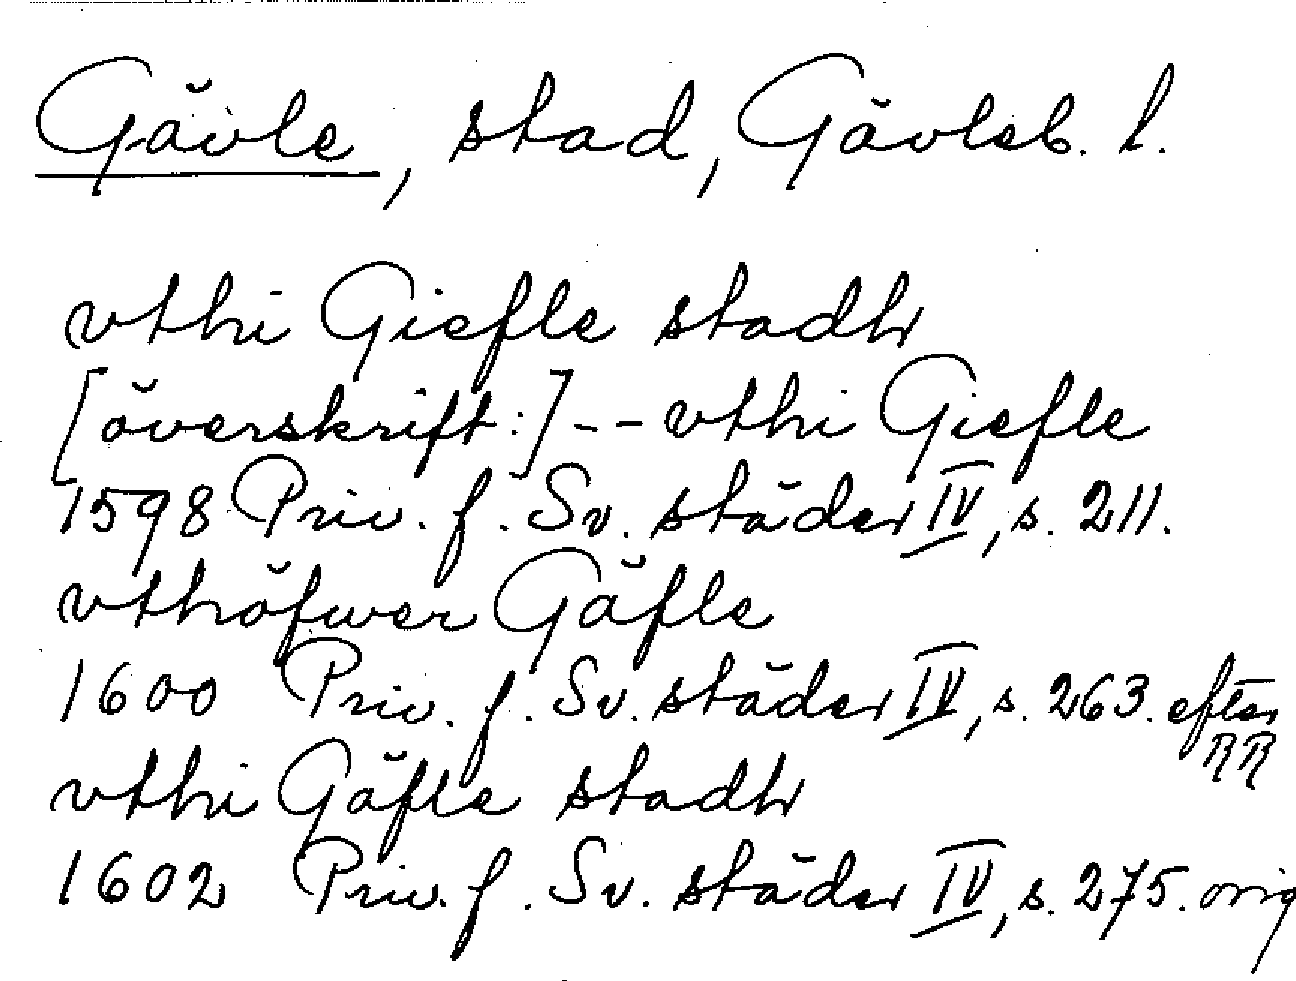 Gävle, stad, Gävleb. l.
vthi Giefle stadh
[överskrift:] -- vthi Giefle
1598 Priv. f. Sv. städer IV, s. 211.
vthöfwer Gäfle
1600 Priv. f. Sv. städer IV, s. 263. efter
RR
vthi Gäfle stadh
1602 Priv. f. Sv. städer IV, s. 275. orig